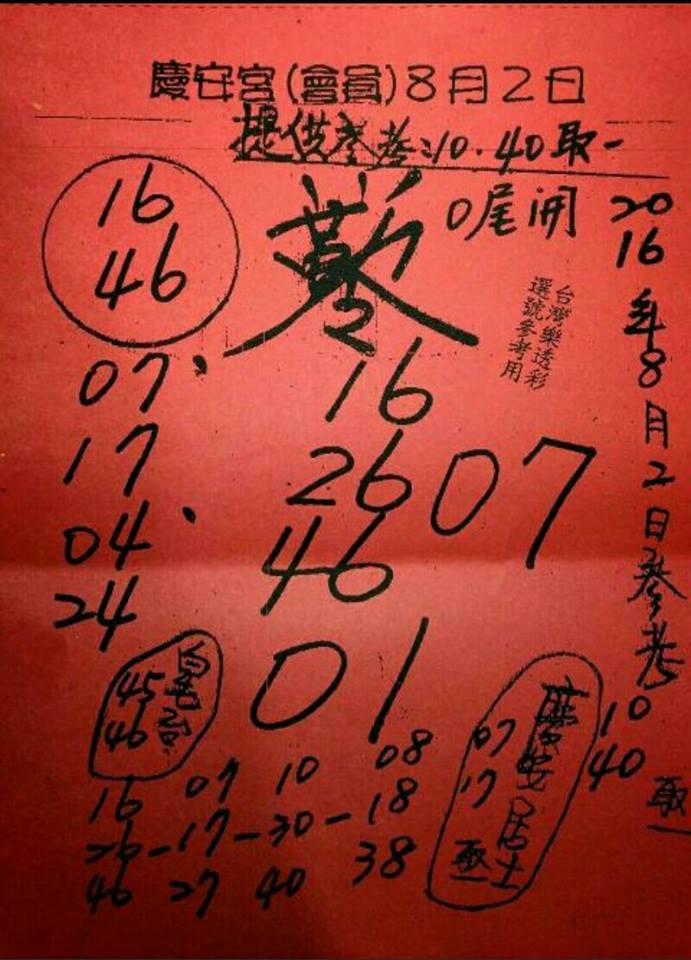 慶安宮(會員)8月2日
提供參考:10.40取一
16
46
0尾開
台灣樂透彩
選號參考用
07
17
04
24
16
26
46
07
01
2016年8月2日參考
10
40
取一
45
46
慶安居士
07
17
取一
16 07 10 08
26-17-30-18
46 27 40 38